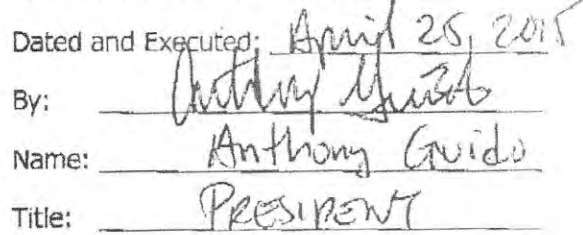 Dated and Executed: April 25, 2015
By: Anthony Guido
Name: Anthony Guido
Title: PRESIDENT